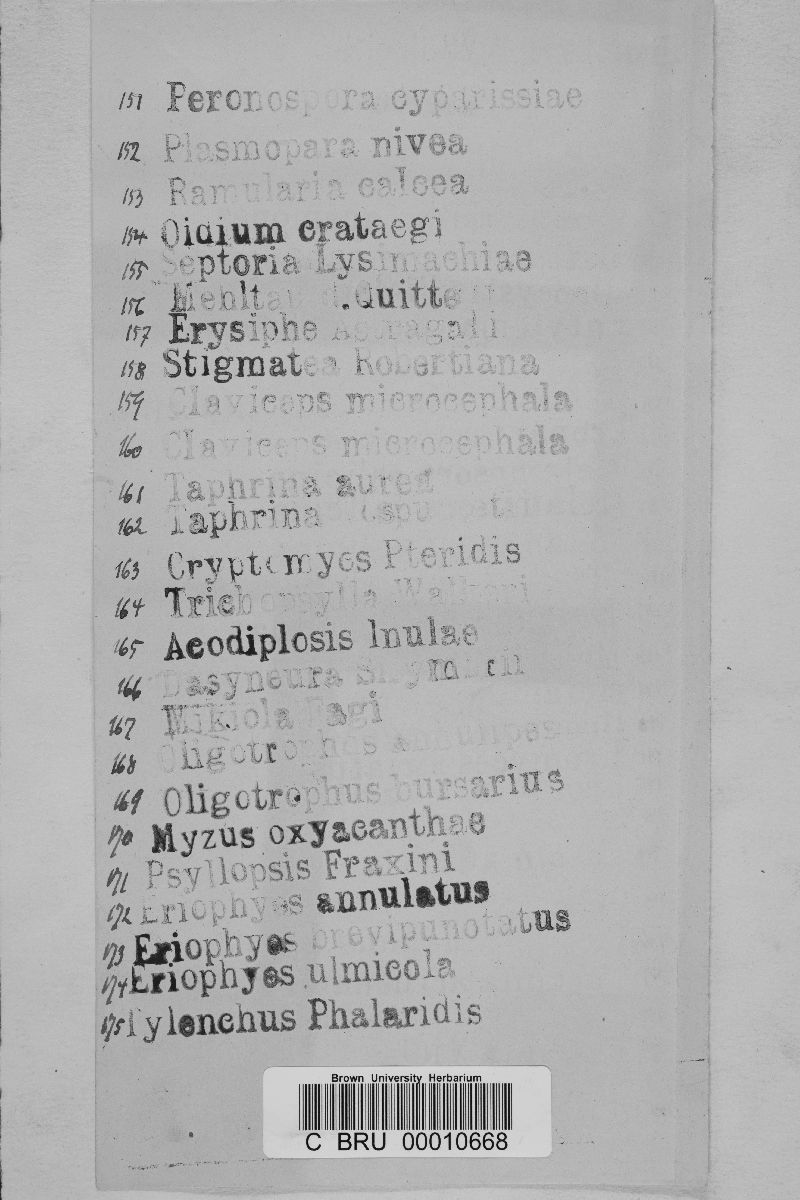 151 Peronospora cyparissiae
152 Plasmopara nivea
153 Ramularia calcea
154 Oidium crataegi
155 Septoria Lysimachiae
156 Mehltau d. Quitte
157 Erysiphe Astragali
158 Stigmatea Robertiana
159 Claviceps microcephala
160 Claviceps microcephala
161 Taphrina aurea
162 Taphrina
163 Cryptomyces Pteridis
164 Trichopsylla Walkeri
165 Acodiplosis Inulae
166 Dasyneura
167 Mikiola Fagi
168 Oligotrophus annulipes
169 Oligotrophus bursarius
170 Myzus oxyacanthae
171 Psyllopsis Fraxini
172 Eriophyes annulatus
173 Eriophyes brevipunctatus
174 Eriophyes ulmicola
175 Tylenchus Phalaridis
Brown University Herbarium
C BRU 00010668